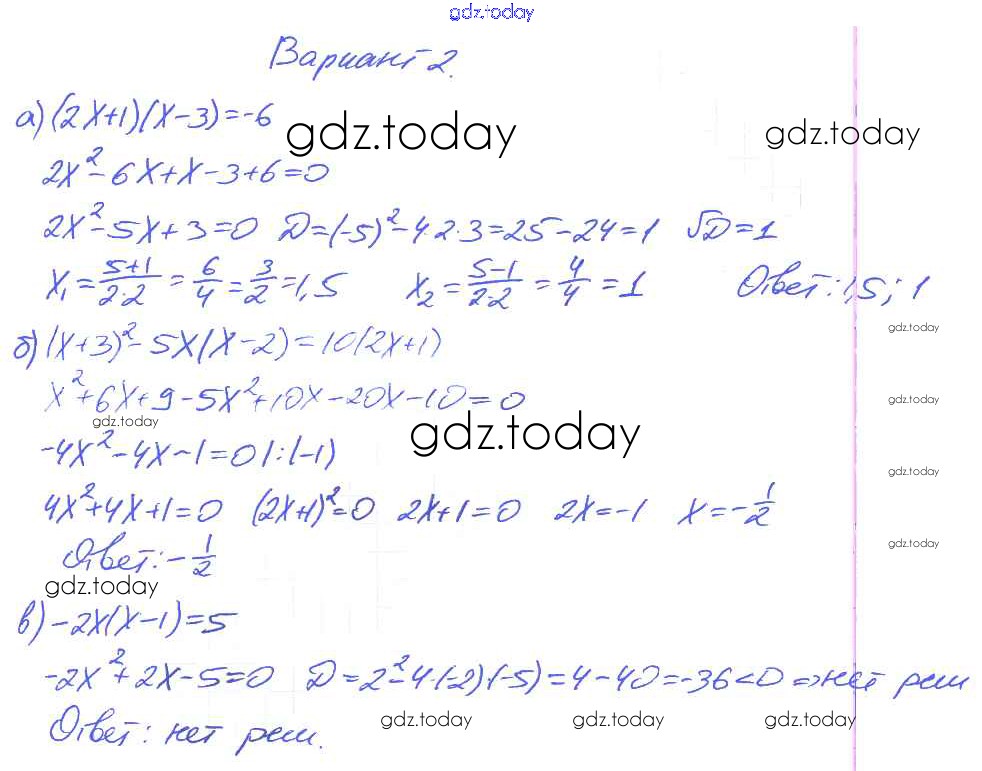 gdz.today
Вариант 2.
а) (2x+1)(x-3)=-6
gdz.today gdz.today
2x²-6x+x-3+6=0
2x²-5x+3=0 D=(-5)²-4·2·3=25-24=1 √D=1
x₁=(5+1)/(2·2)=6/4=3/2=1,5 x₂=(5-1)/(2·2)=4/4=1 Ответ: 1,5; 1
gdz.today
б) (x+3)²-5x(x-2)=10(2x+1)
x²+6x+9-5x²+10x-20x-10=0
gdz.today
gdz.today
gdz.today
-4x²-4x-1=0 |:(-1)
gdz.today
4x²+4x+1=0 (2x+1)²=0 2x+1=0 2x=-1 x=-1/2
gdz.today
Ответ: -1/2
gdz.today
в) -2x(x-1)=5
-2x²+2x-5=0 D=2²-4·(-2)·(-5)=4-40=-36<0 ⇒ нет реш
gdz.today gdz.today gdz.today
Ответ: нет реш.